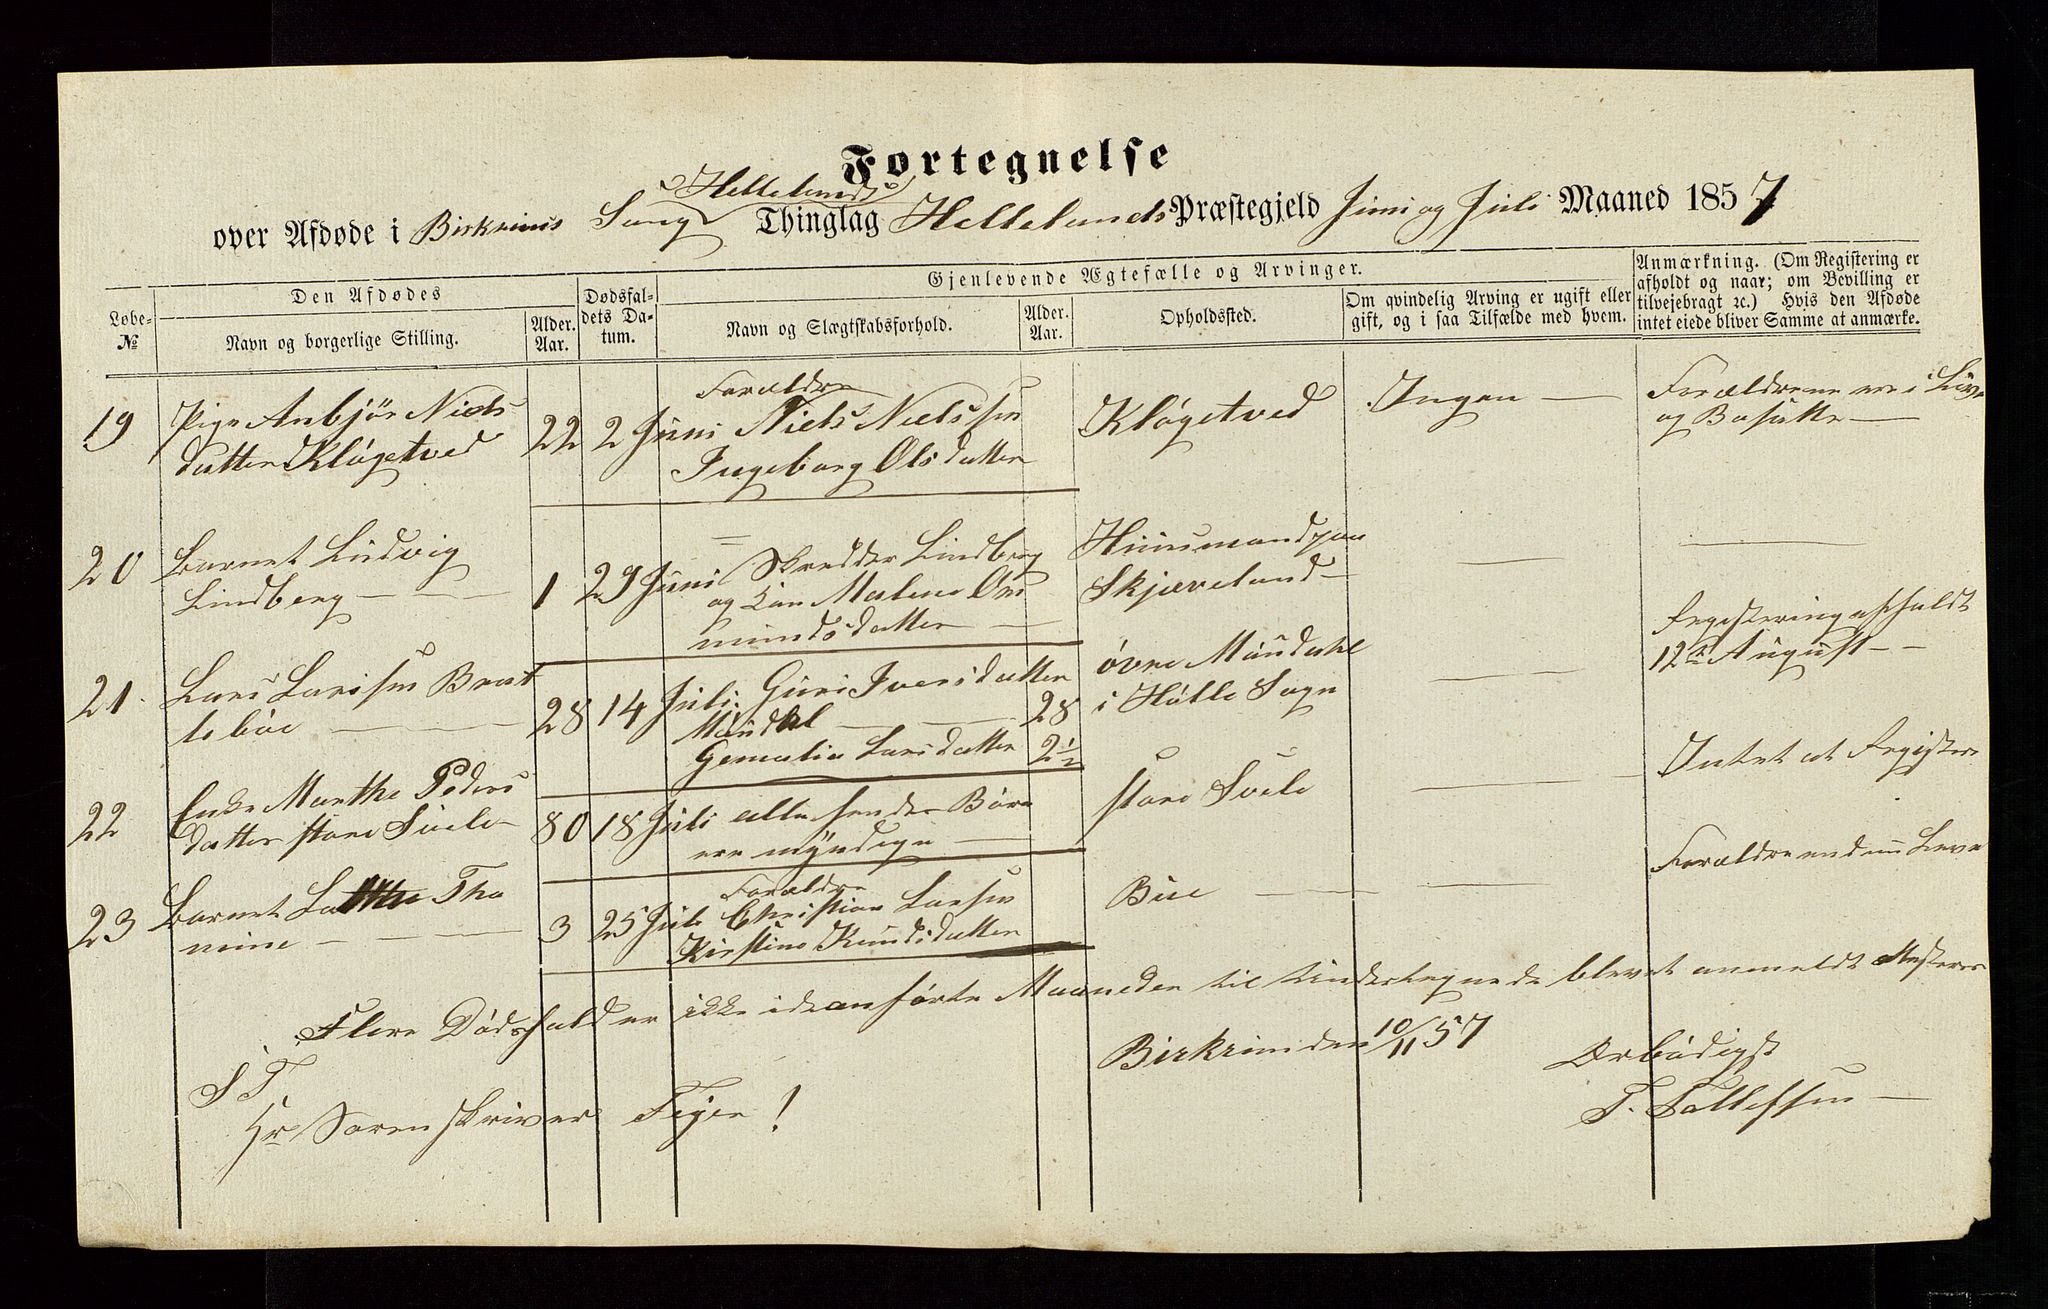 Fortegnelse
Hellelands
over Afdøde i Birkrims Song Thinglag Hellelands Præstegjeld Juni og Juli Maaned 1857
Løbe-
№
Den Afdødes
Navn og borgerlige Stilling.
Alder.
Aar.
Dødsfal-
dets Da-
tum.
Gjenlevende Ægtefælle og Arvinger.
Navn og Slægtskabsforhold.
Alder.
Aar.
Opholdssted.
Om qvindelig Arving er ugift eller
gift, og i saa Tilfælde med hvem.
Anmærkning. (Om Registering er
afholdt og naar; om Bevilling er
tilvejebragt ꝛc.) Hvis den Afdøde
intet eiede bliver Samme at anmærke.
19 Pige Anbjør Niels
datter Kløgetved
22 2 Juni
Forældre
Niels Nielssen
Ingeborg Olsdatter
Kløgetved
Ingen —
Forældrene ere i Live
og Bosatte —
20 Barnet Ludvig
Lindberg — — —
1 29 Juni
Skredder Lindberg
og Malene Os
mundsdatter —
Huusmandspl
Skjæveland —
21. Lars Larssen Brat
lebøe — — —
28 14 Juli.
Guri Iversdatter
Maudal — — 28
Larsdatter 2½
øvre Maudahl
i Hølle Sogn
Registering afholdt
12te August — —
22 Enke Marthe Peders
datter store Svele —
80 18 Juli
alle hendes Børn
ere myndige —
store Svele
Intet at Registere
23 Barnet Tho
mine — — —
3 25 Juli
Forældre
Christian Larsen
Kirstine Knudsdatter
Bue —
Forældre endnu Leve
Flere Dødsfald er ikke i de anførte Maaneder til Undertegnede blevet anmeldt
Birkrim den 10/11 57
Ærbødigst
T. Tollefssen —
S T
Hr Sorenskriver Feyer!